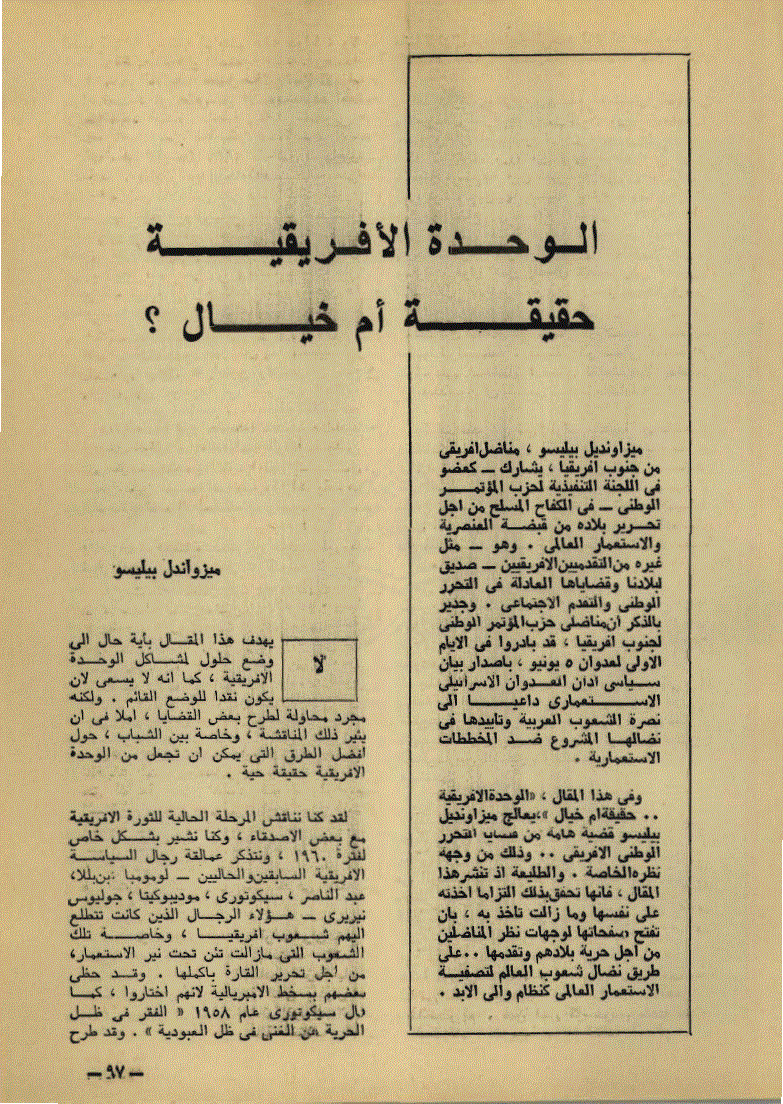 الوحدة الأفريقية
حقيقة أم خيال ؟
ميزاونديل بيليسو ، مناضل افريقى
من جنوب افريقيا ، يشارك ــ كعضو
فى اللجنة التنفيذية لحزب المؤتمر
الوطنى ــ فى الكفاح المسلح من اجل
تحرير بلاده من قبضة العنصرية
والاستعمار العالمى . وهو ــ مثل
غيره من التقدميين الافريقيين ــ صديق
لبلادنا وقضاياها العادلة فى التحرر
الوطنى والتقدم الاجتماعى . وجدير
بالذكر ان مناضلى حزب المؤتمر الوطنى
لجنوب افريقيا ، قد بادروا فى الايام
الاولى لعدوان ٥ يونيو ، باصدار بيان
سياسى ادان العدوان الاسرائيلى
الاستعمارى داعيا الى
نصرة الشعوب العربية وتاييدها فى
نضالها المشروع ضد المخططات
الاستعمارية .
وفى هذا المقال ، «الوحدة الافريقية
.. حقيقة ام خيال »، يعالج ميزاونديل
بيليسو قضية هامة من قضايا التحرر
الوطنى الافريقى .. وذلك من وجهة
نظره الخاصة . والطليعة اذ تنشر هذا
المقال ، فانها تحقق بذلك التزاما اخذته
على نفسها وما زالت تاخذ به ، بان
تفتح صفحاتها لوجهات نظر المناضلين
من اجل حرية بلادهم وتقدمها .. على
طريق نضال شعوب العالم لتصفية
الاستعمار العالمى كنظام والى الابد .
ميزواندل بيليسو
لا يهدف هذا المقال بأية حال الى
وضع حلول لمشاكل الوحدة
الافريقية ، كما انه لا يسعى لان
يكون نقدا للوضع القائم . ولكنه
مجرد محاولة لطرح بعض القضايا ، املا فى ان
يثير ذلك المناقشة ، وخاصة بين الشباب ، حول
افضل الطرق التى يمكن ان تجعل من الوحدة
الافريقية حقيقة حية .
لقد كنا نناقش المرحلة الحالية للثورة الافريقية
مع بعض الاصدقاء ، وكنا نشير بشكل خاص
لفترة ١٩٦٠ ، ونتذكر عمالقة رجال السياسة
الافريقية السابقين والحاليين ــ لومومبا ، بن بللا ،
عبد الناصر ، سيكوتورى ، موديبوكيتا ، جوليوس
نيريرى ــ هؤلاء الرجال الذين كانت تتطلع
اليهم شعوب افريقيا ، وخاصة تلك
الشعوب التى مازالت تئن تحت نير الاستعمار ،
من اجل تحرير القارة باكملها . وقد حظى
بعضهم بسخط الامبريالية لانهم اختاروا ، كما
قال سيكوتورى عام ١٩٥٨ « الفقر فى ظل
الحرية عن الغنى فى ظل العبودية » . وقد طرح
ــ ٩٧ ــ